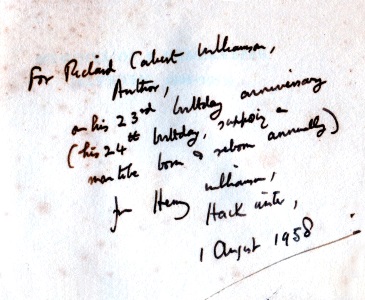 For Richard Calvert Williamson,
Author,
on his 23rd birthday anniversary
(his 24th birthday, supposing a
man to be born & reborn annually)
from Henry Williamson,
Hack writer,
1 August 1958